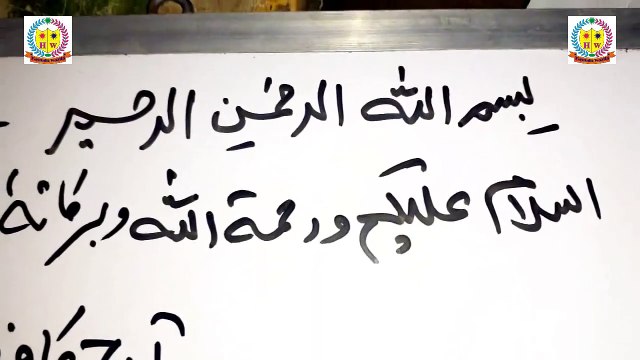 بسم اللہ الرحمٰن الرحیم
السلام علیکم ورحمة اللہ وبرکاتهٗ
آج کا